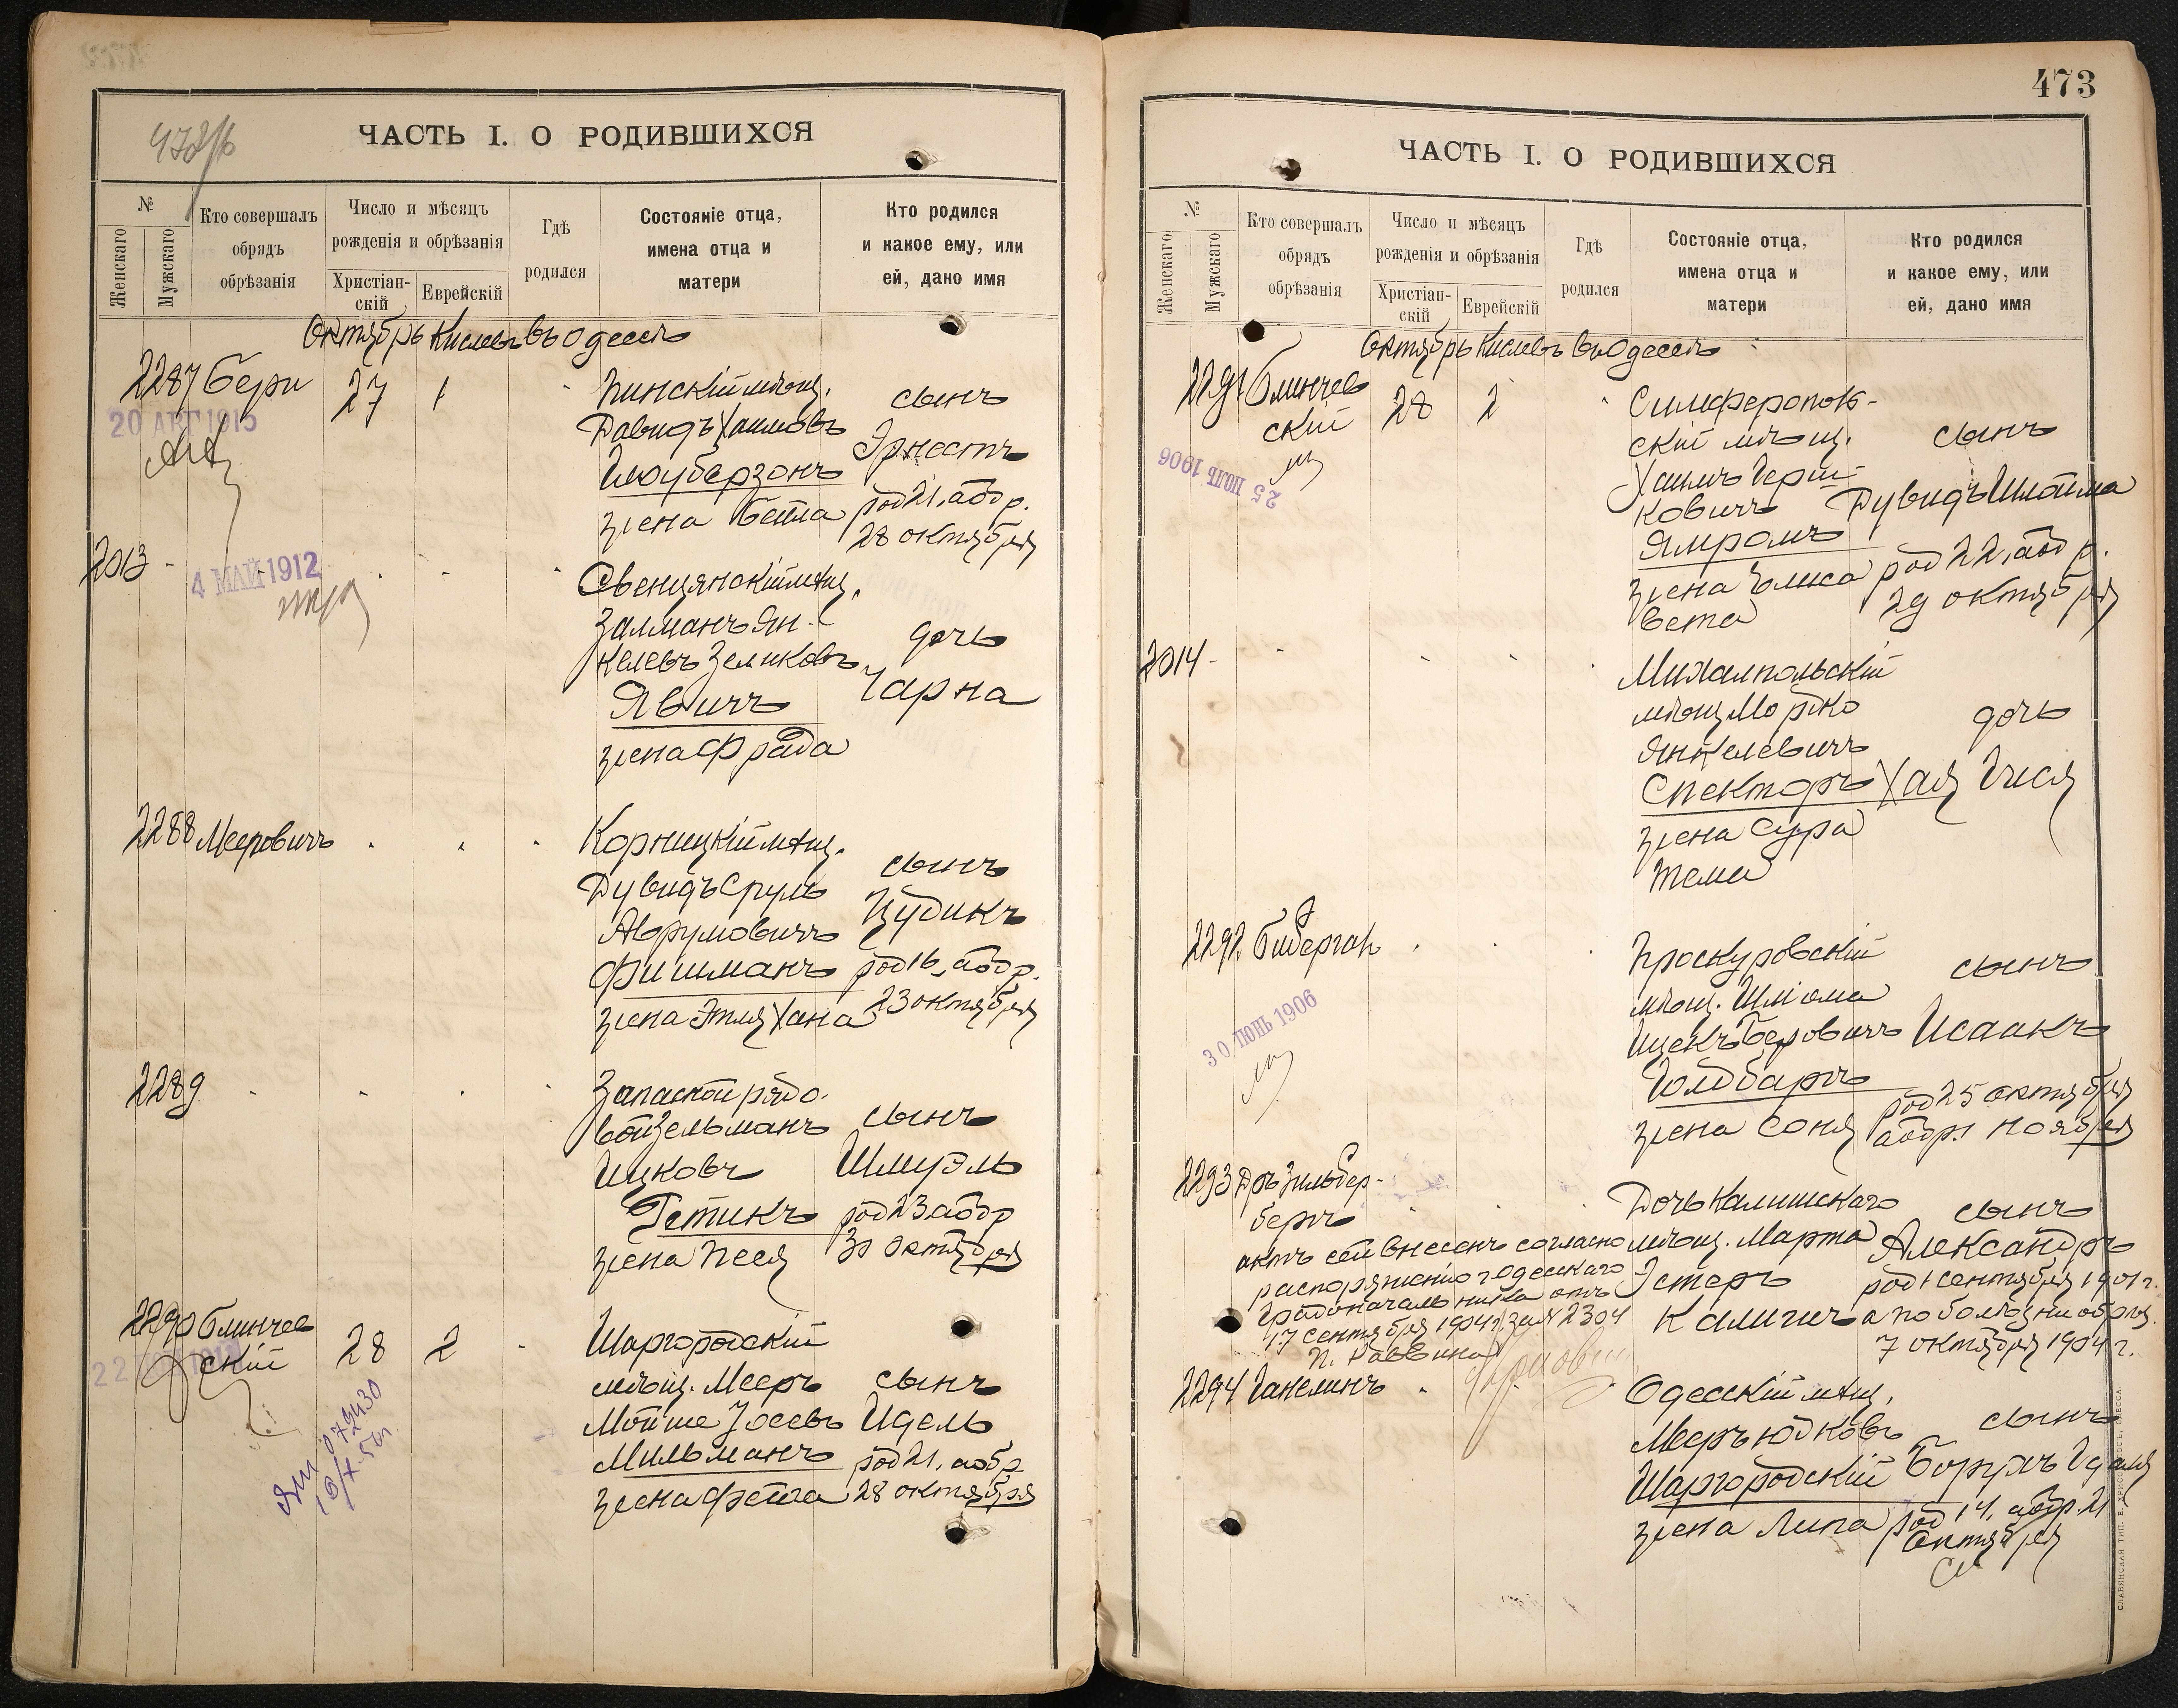 ЧАСТЬ I. О РОДИВШИХСЯ
№
Женскаго
Мужскаго
Кто совершалъ
обрядъ
обрѣзанія
Число и мѣсяцъ
рожденія и обрѣзанія
Христіан-
скій
Еврейскій
Гдѣ
родился
Состояніе отца,
имена отца и
матери
Кто родился
и какое ему, или
ей, дано имя
Октябрь Кислевъ въ Одессѣ
2287 Бери 27 1
20 АВГ 1915
Пинскій мѣщ.
Давидъ Хаимовъ
жена Бейла
сынъ
Эрнестъ
род 21, а обр.
28 октября
2013
4 МАЙ 1912
Свенцянскій мѣщ.
Залманъ Ян-
келевъ Зеликовъ
Явичъ
жена Фрада
дочь
Чарна
2288 Мееровичъ
мѣщ.
Дувидъ Сруль
Аврумовичъ
Фишманъ
жена Этля Хана
сынъ
Цудикъ
род 16, а обр.
23 октября
2289
Запасной рядо-
вой Зельманъ
Ицковъ
жена Песя
сынъ
Шмуэль
род 23 а обр
30 октября
2290 Блинчев
ский 28 2
Шаргородскій
мѣщ. Мееръ
Мойше Іосевъ
Мильманъ
жена Фейга
сынъ
Идель
род 21, а обр
28 октября
473
ЧАСТЬ I. О РОДИВШИХСЯ
№
Женскаго
Мужскаго
Кто совершалъ
обрядъ
обрѣзанія
Число и мѣсяцъ
рожденія и обрѣзанія
Христіан-
скій
Еврейскій
Гдѣ
родился
Состояніе отца,
имена отца и
матери
Кто родился
и какое ему, или
ей, дано имя
Октябрь Кислевъ въ Одессѣ
2291 Блинчев
скій 28 2
25 ІЮЛЬ 1906
Симферополь-
скій мѣщ.
Хаимъ Герш-
ковичъ
Ямполь
жена Елиса
вета
сынъ
Дувидъ Шлойма
род 22, а обр.
29 октября
2014
Михалпольскій
мѣщ Мордко
Янкелевичъ
Спекторъ
жена Сура
Тема
дочь
Хая Гися
2292
30 ІЮНЬ 1906
Проскуровскій
мѣщ. Шліома
Ицекъ Беровичъ
жена Соня
сынъ
Исаакъ
род 25 октября
а обр. 1 ноября
2293 Д-ръ Зильбер-
бергъ
актъ сей внесенъ согласно
распоряженію г Одесскаго
Градоначальника отъ
17 сентября 1904 г за № 2304
п. Раввина
Дочь Калишскаго
мѣщ. Марта
Эстеръ
сынъ
Александръ
род 1 сентября 1901 г.
а по болѣзни обрѣз.
7 октября 1904 г.
2294 Ганелинъ
Одесскій мѣщ.
Меерь Юдковъ
Шаргородскій
жена Липа
сынъ
Борухъ
род 14, а обр. 21
Октября
СЛАВЯНСКАЯ ТИП. Е. ХРИСОГЕЛОСЪ, ОДЕССА.